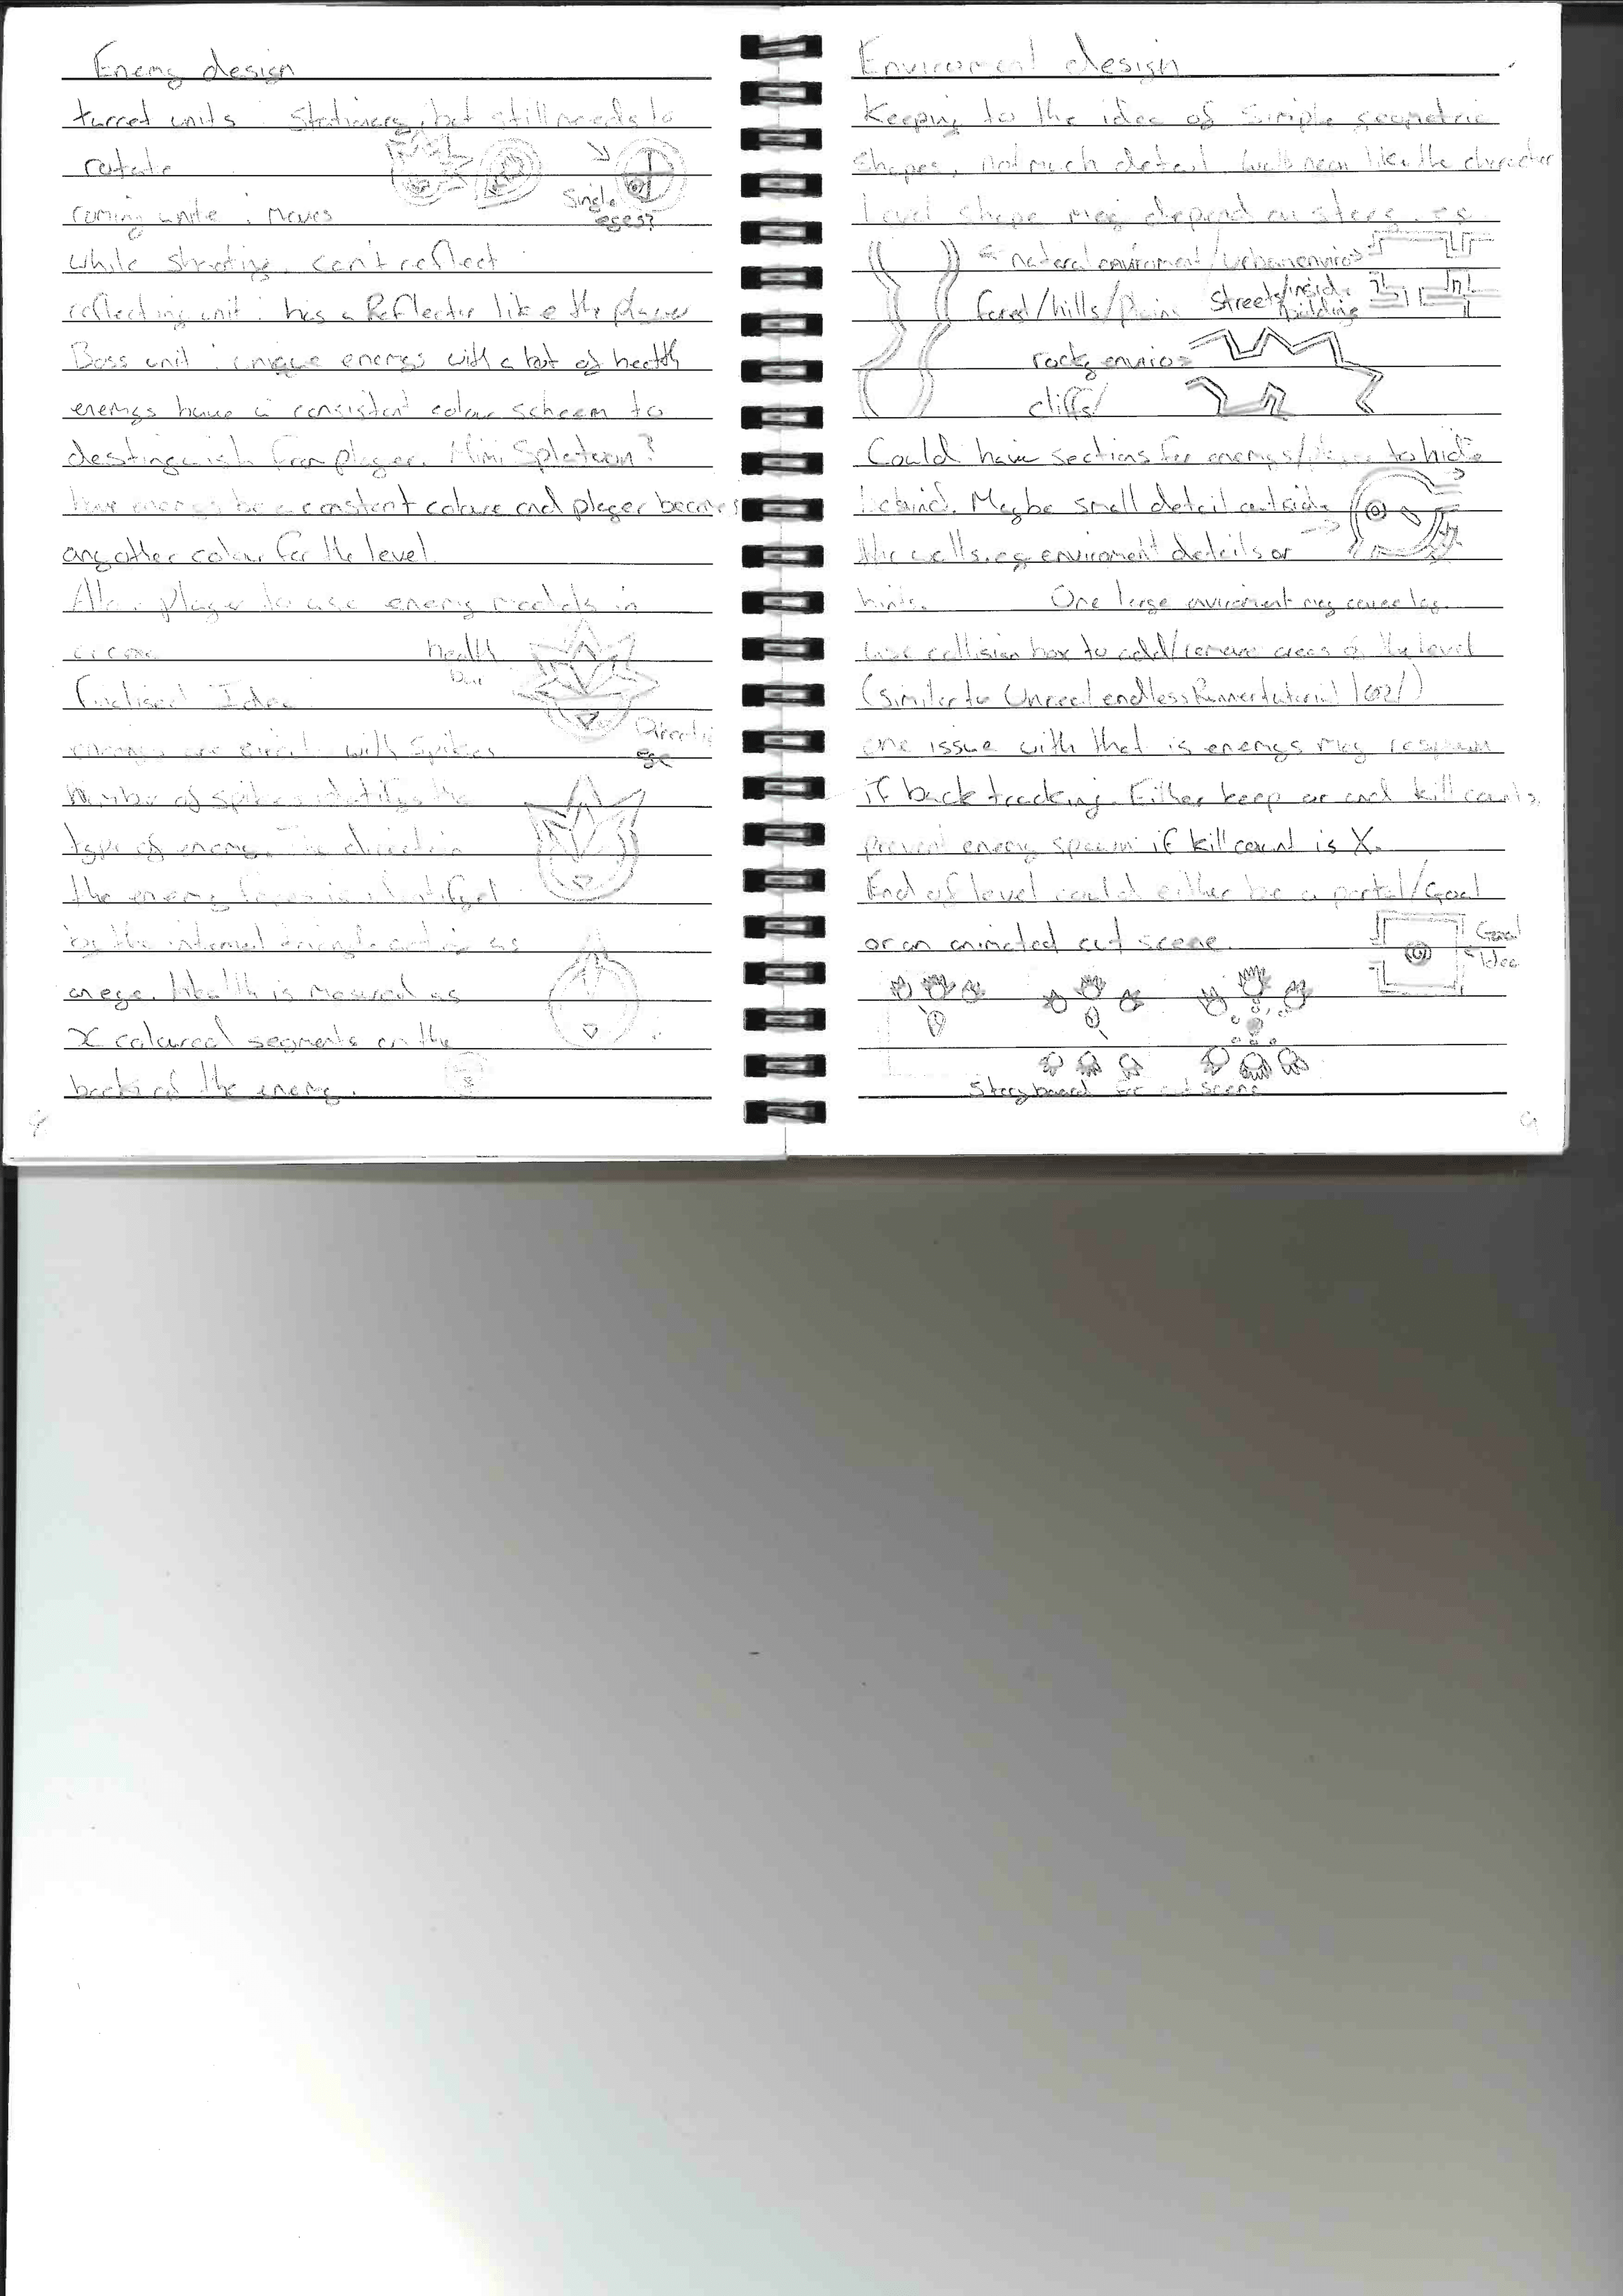 Enemy design
turret units : Stationary, but still needs to
rotate
Single
eges?
roming units : Moves
while shooting. can't reflect
reflecting unit : has a Reflector like the player
Boss unit : unique enemys with a lot of health
enemys have a consistent colour scheem to
destinguish from player. Mimi Splatoon?
have enemys be a constant colour and player becomes
any other colour for the level.
Allow player to use enemy models in
Health
Bar
Finalised Idea
Directi
ege
enemys are circles with spikes
Number of spikes identifys the
type of enemy. The direction
the enemy faces is identifyed
by the internal triangle acting as
an ege. Health is mesured as
X coloured segments on the
back of the enemy.
Enviroment design
Keeping to the idea of simple geometric
shapes, not much detail. walls neon like the character
Level shape may depend on story. eg.
natural enviroment/urban enviro
forest/hills/plains Streets/inside
building
rocky enviro
cliffs/
Could have sections for enemys/player to hide
behind. Maybe small detail outside
the walls. eg enviroment details or
hints. One large enviroment may cause lag.
use collision box to add/remove areas of the level
(similar to Unreal endless Runner tutorial
one issue with that is enemys may respawn
if back tracking. Either keep or and kill counts,
prevent enemy spawn if kill count is X.
End of level could either be a portal/Goal
or an animated cut scene.
Goal
Idea
Storyboard for cut scene
9